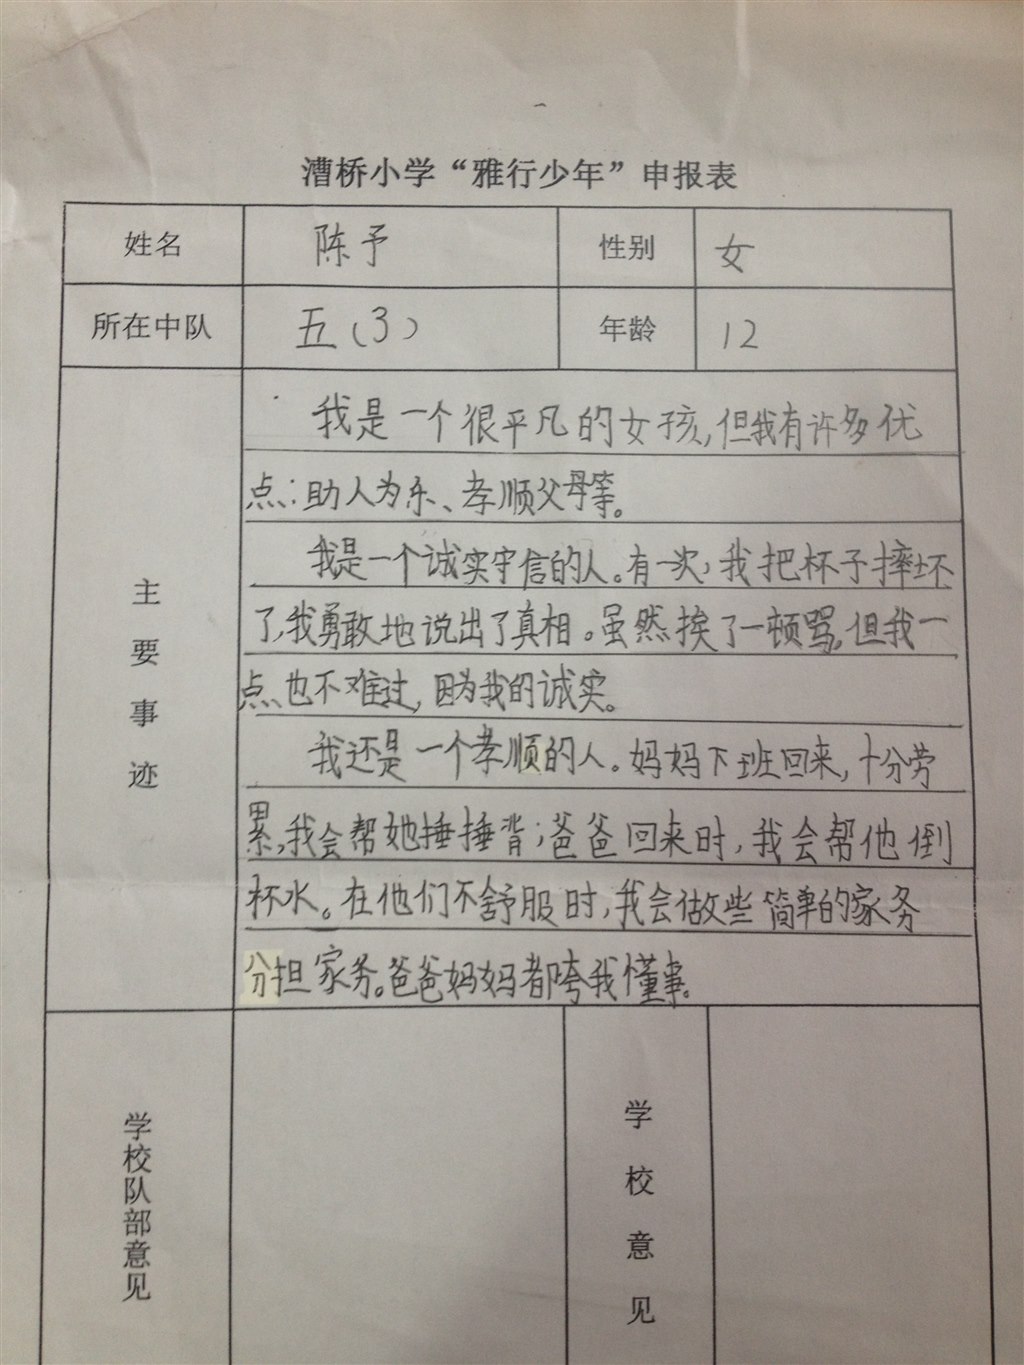 漕桥小学“雅行少年”申报表
姓名 陈予 性别 女
所在中队 五(3) 年龄 12
主要事迹
我是一个很平凡的女孩,但我有许多优
点:助人为乐、孝顺父母等。
我是一个诚实守信的人。有一次,我把杯子摔坏
了,我勇敢地说出了真相。虽然挨了一顿骂,但我一
点也不难过,因为我的诚实。
我还是一个孝顺的人。妈妈下班回来,十分劳
累,我会帮她捶捶背;爸爸回来时,我会帮他倒
杯水。在他们不舒服时,我会做些简单的家务
分担家务。爸爸妈妈都夸我懂事。
学校队部意见
学校意见